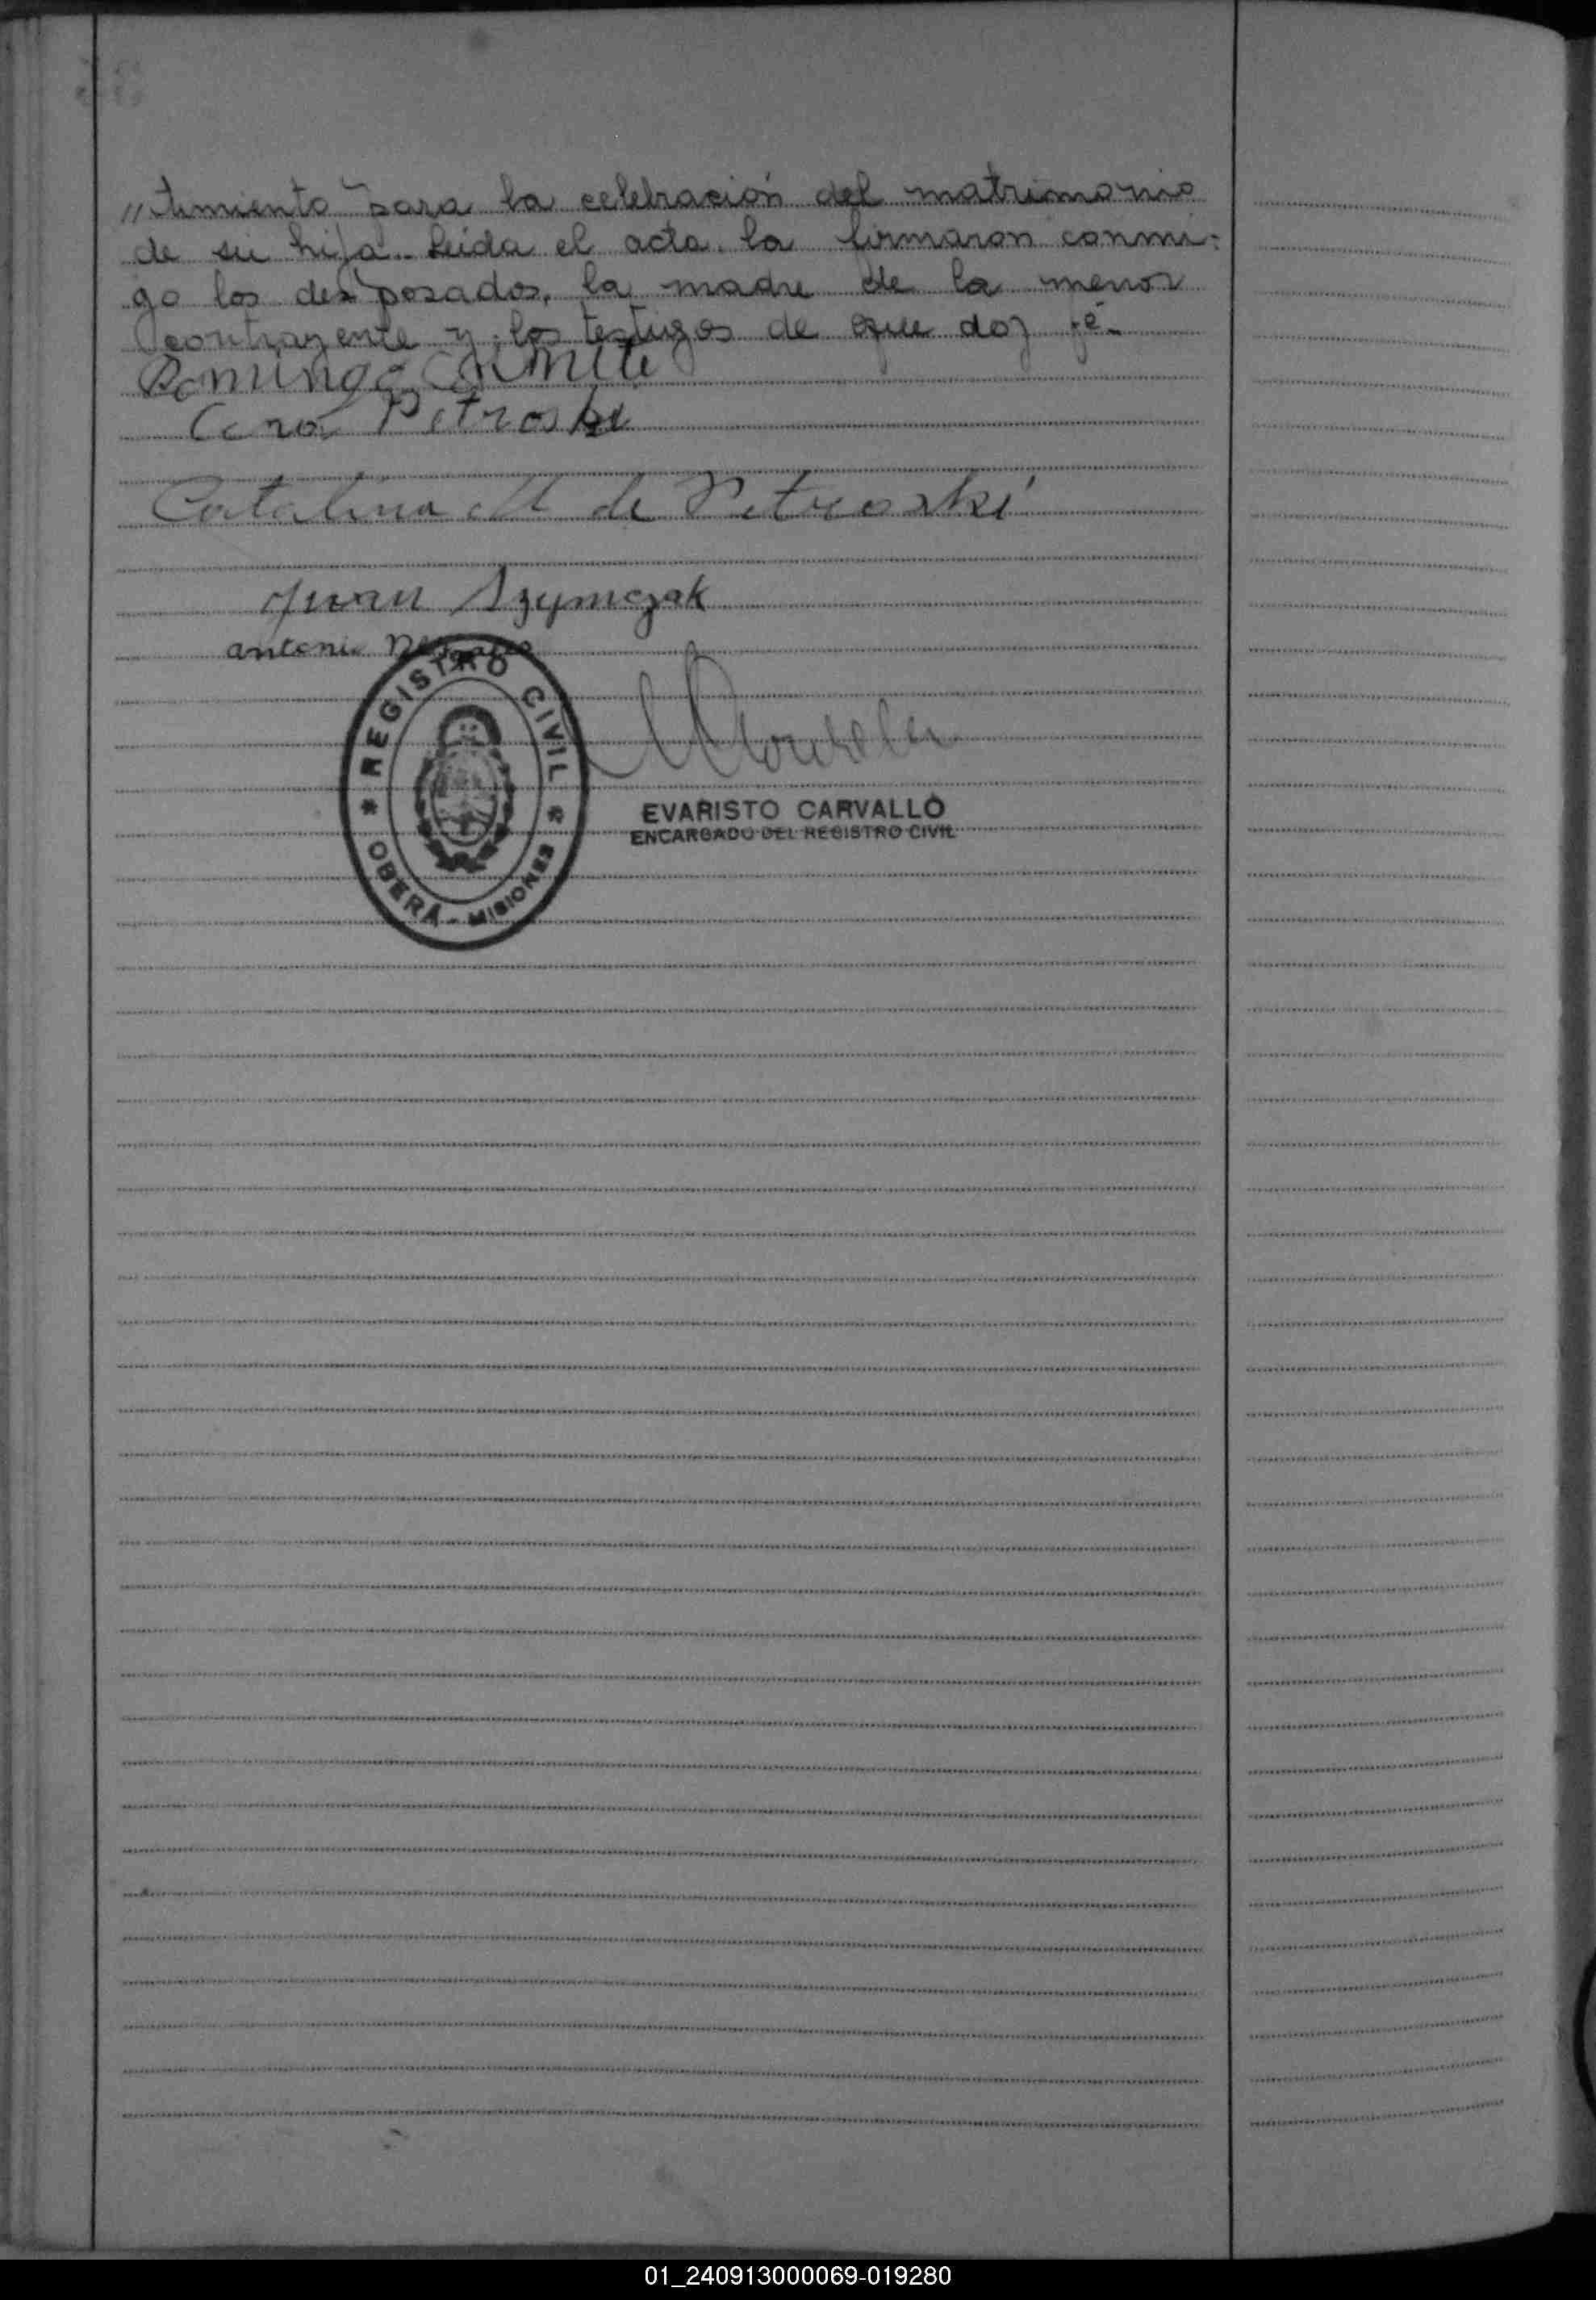 // timiento para la celebración del matrimonio
de su hija.. Leida el acta. la firmaron conmi-
go los desposados, la madre de la menor
contrayente y los testigos de que doy fé.
Domingo
Petroski
Catalina M de Petroski
Juan Szymczak
antonio
REGISTRO CIVIL
OBERÁ - MISIONES
EVARISTO CARVALLO
ENCARGADO DEL REGISTRO CIVIL
01_240913000069-019280